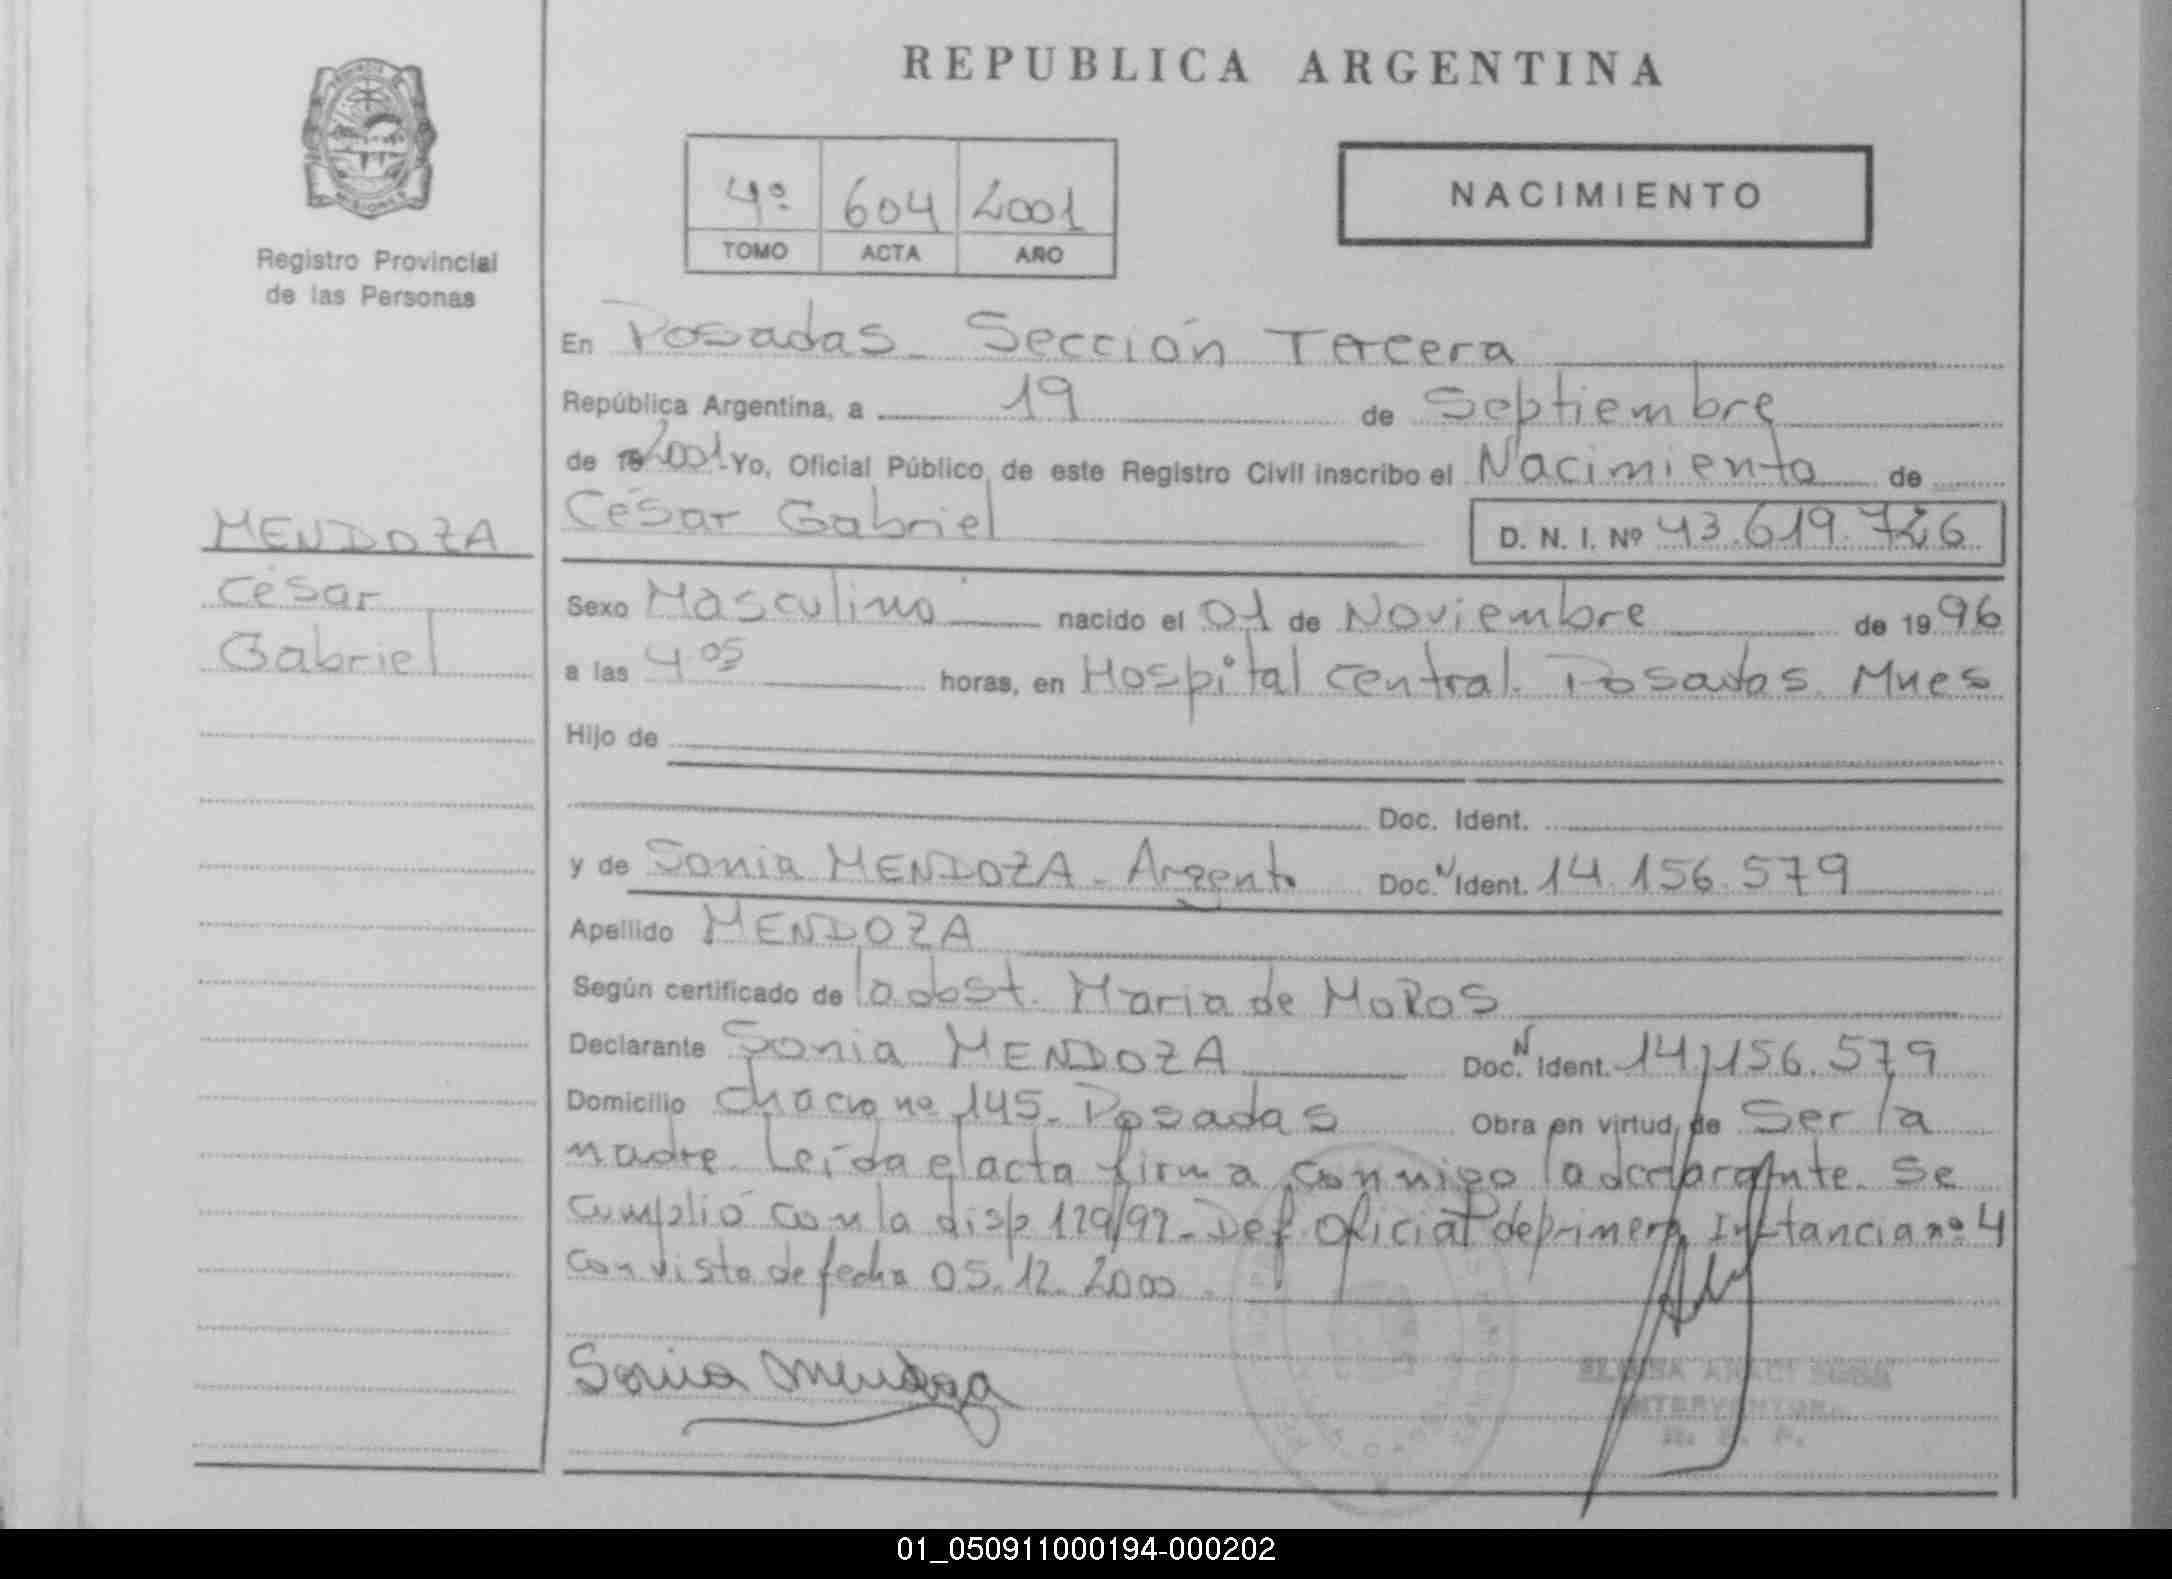 REPUBLICA ARGENTINA
4º 604 2001
TOMO ACTA AÑO
NACIMIENTO
Registro Provincial
de las Personas
MENDOZA
César
Gabriel
En Posadas - Sección Tercera
República Argentina, a 19 de Septiembre
de 19 2001 Yo, Oficial Público de este Registro Civil inscribo el Nacimiento de
César Gabriel D. N. I. Nº 43.619.726
Sexo Masculino nacido el 01 de Noviembre de 1996
a las 4.05 horas, en Hospital Central. Posadas. Mnes
Hijo de
Doc. Ident.
y de Sonia MENDOZA - Argent Doc. N Ident. 14.156.579
Apellido MENDOZA
Según certificado de la obst. Maria de MOROS
Declarante Sonia MENDOZA Doc. N Ident. 14.156.579
Domicilio chacra nº 145 - Posadas Obra en virtud de Ser la
madre. Leída el acta firma conmigo la declarante. Se
cumplió con la disp 129/97 - Def. Oficial de primera Instancia nº 4
con vista de fecha 05.12.2000 -
Sonia Mendoza
INTERVENTORA
R. P. P.
01_050911000194-000202